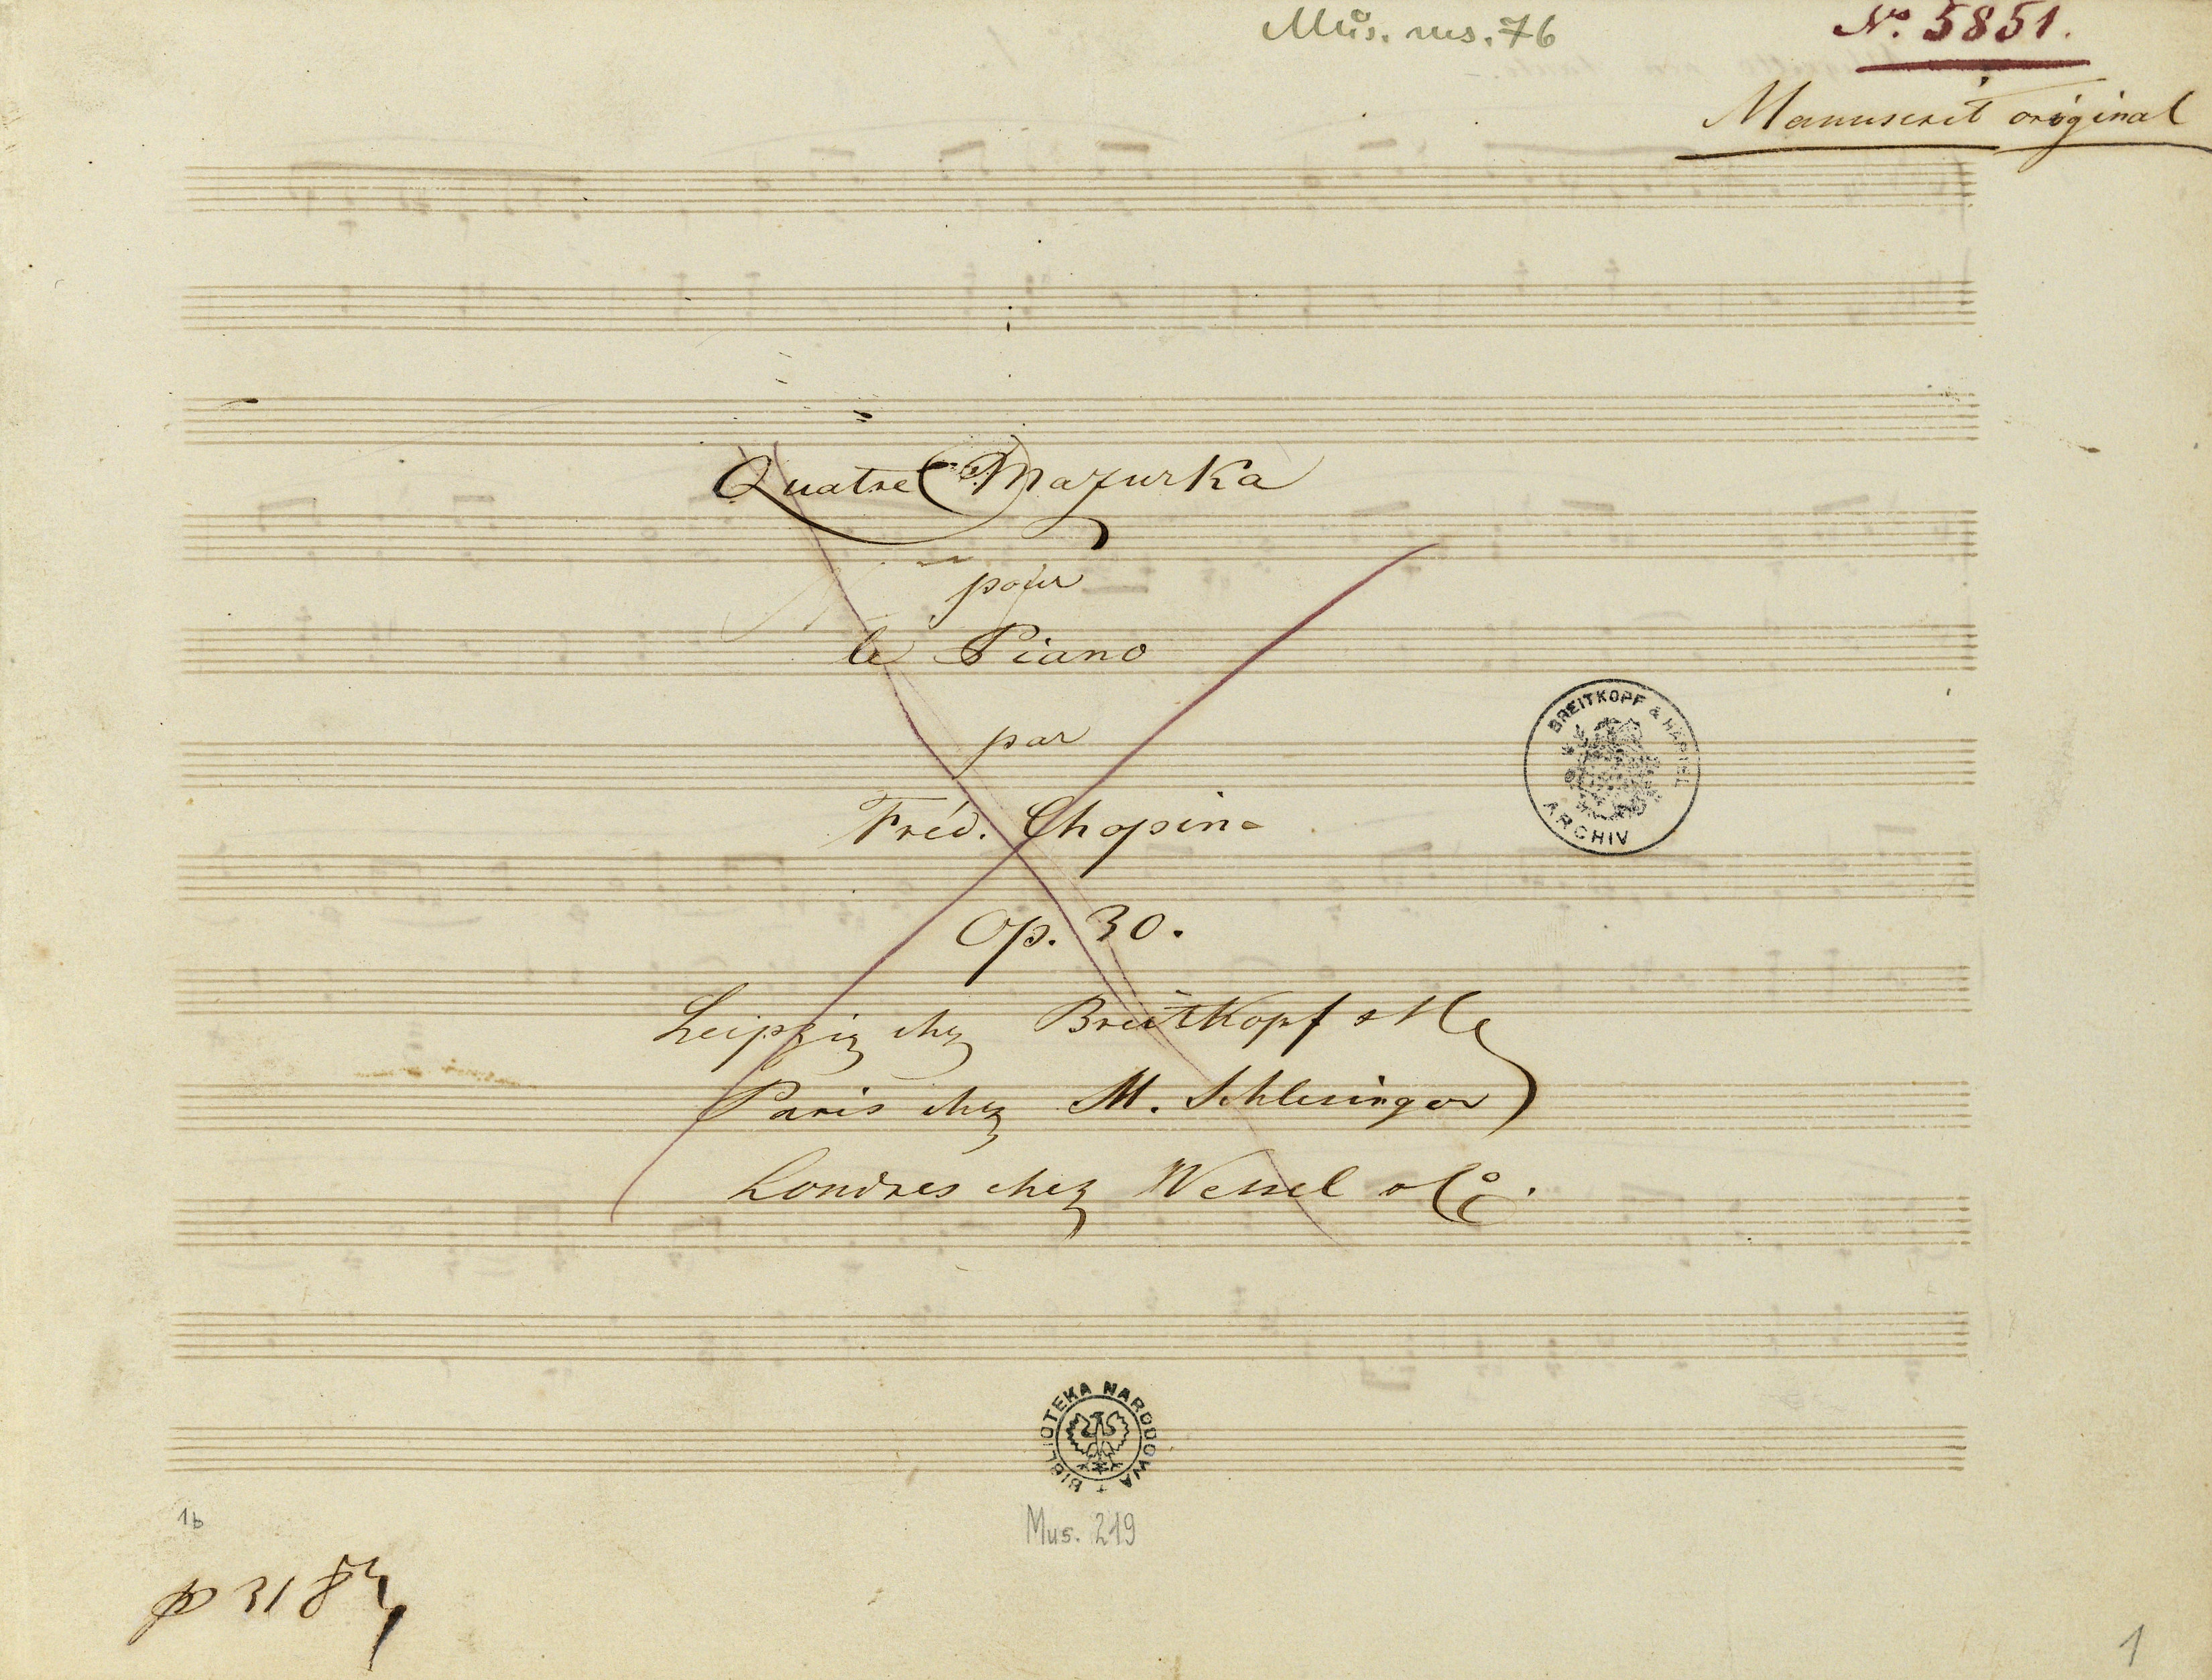 Mus. ms. 76
No. 5851.
Manuscrit original
Quatre Mazurka
pour
le Piano
par
Fréd. Chopin
Op. 30.
Leipzig chez Breitkopf et
Paris chez M. Schlesinger
Londres chez Wessel
BREITKOPF & HÄRTEL
ARCHIV
BIBLIOTEKA NARODOWA
Mus. 219
1b
1